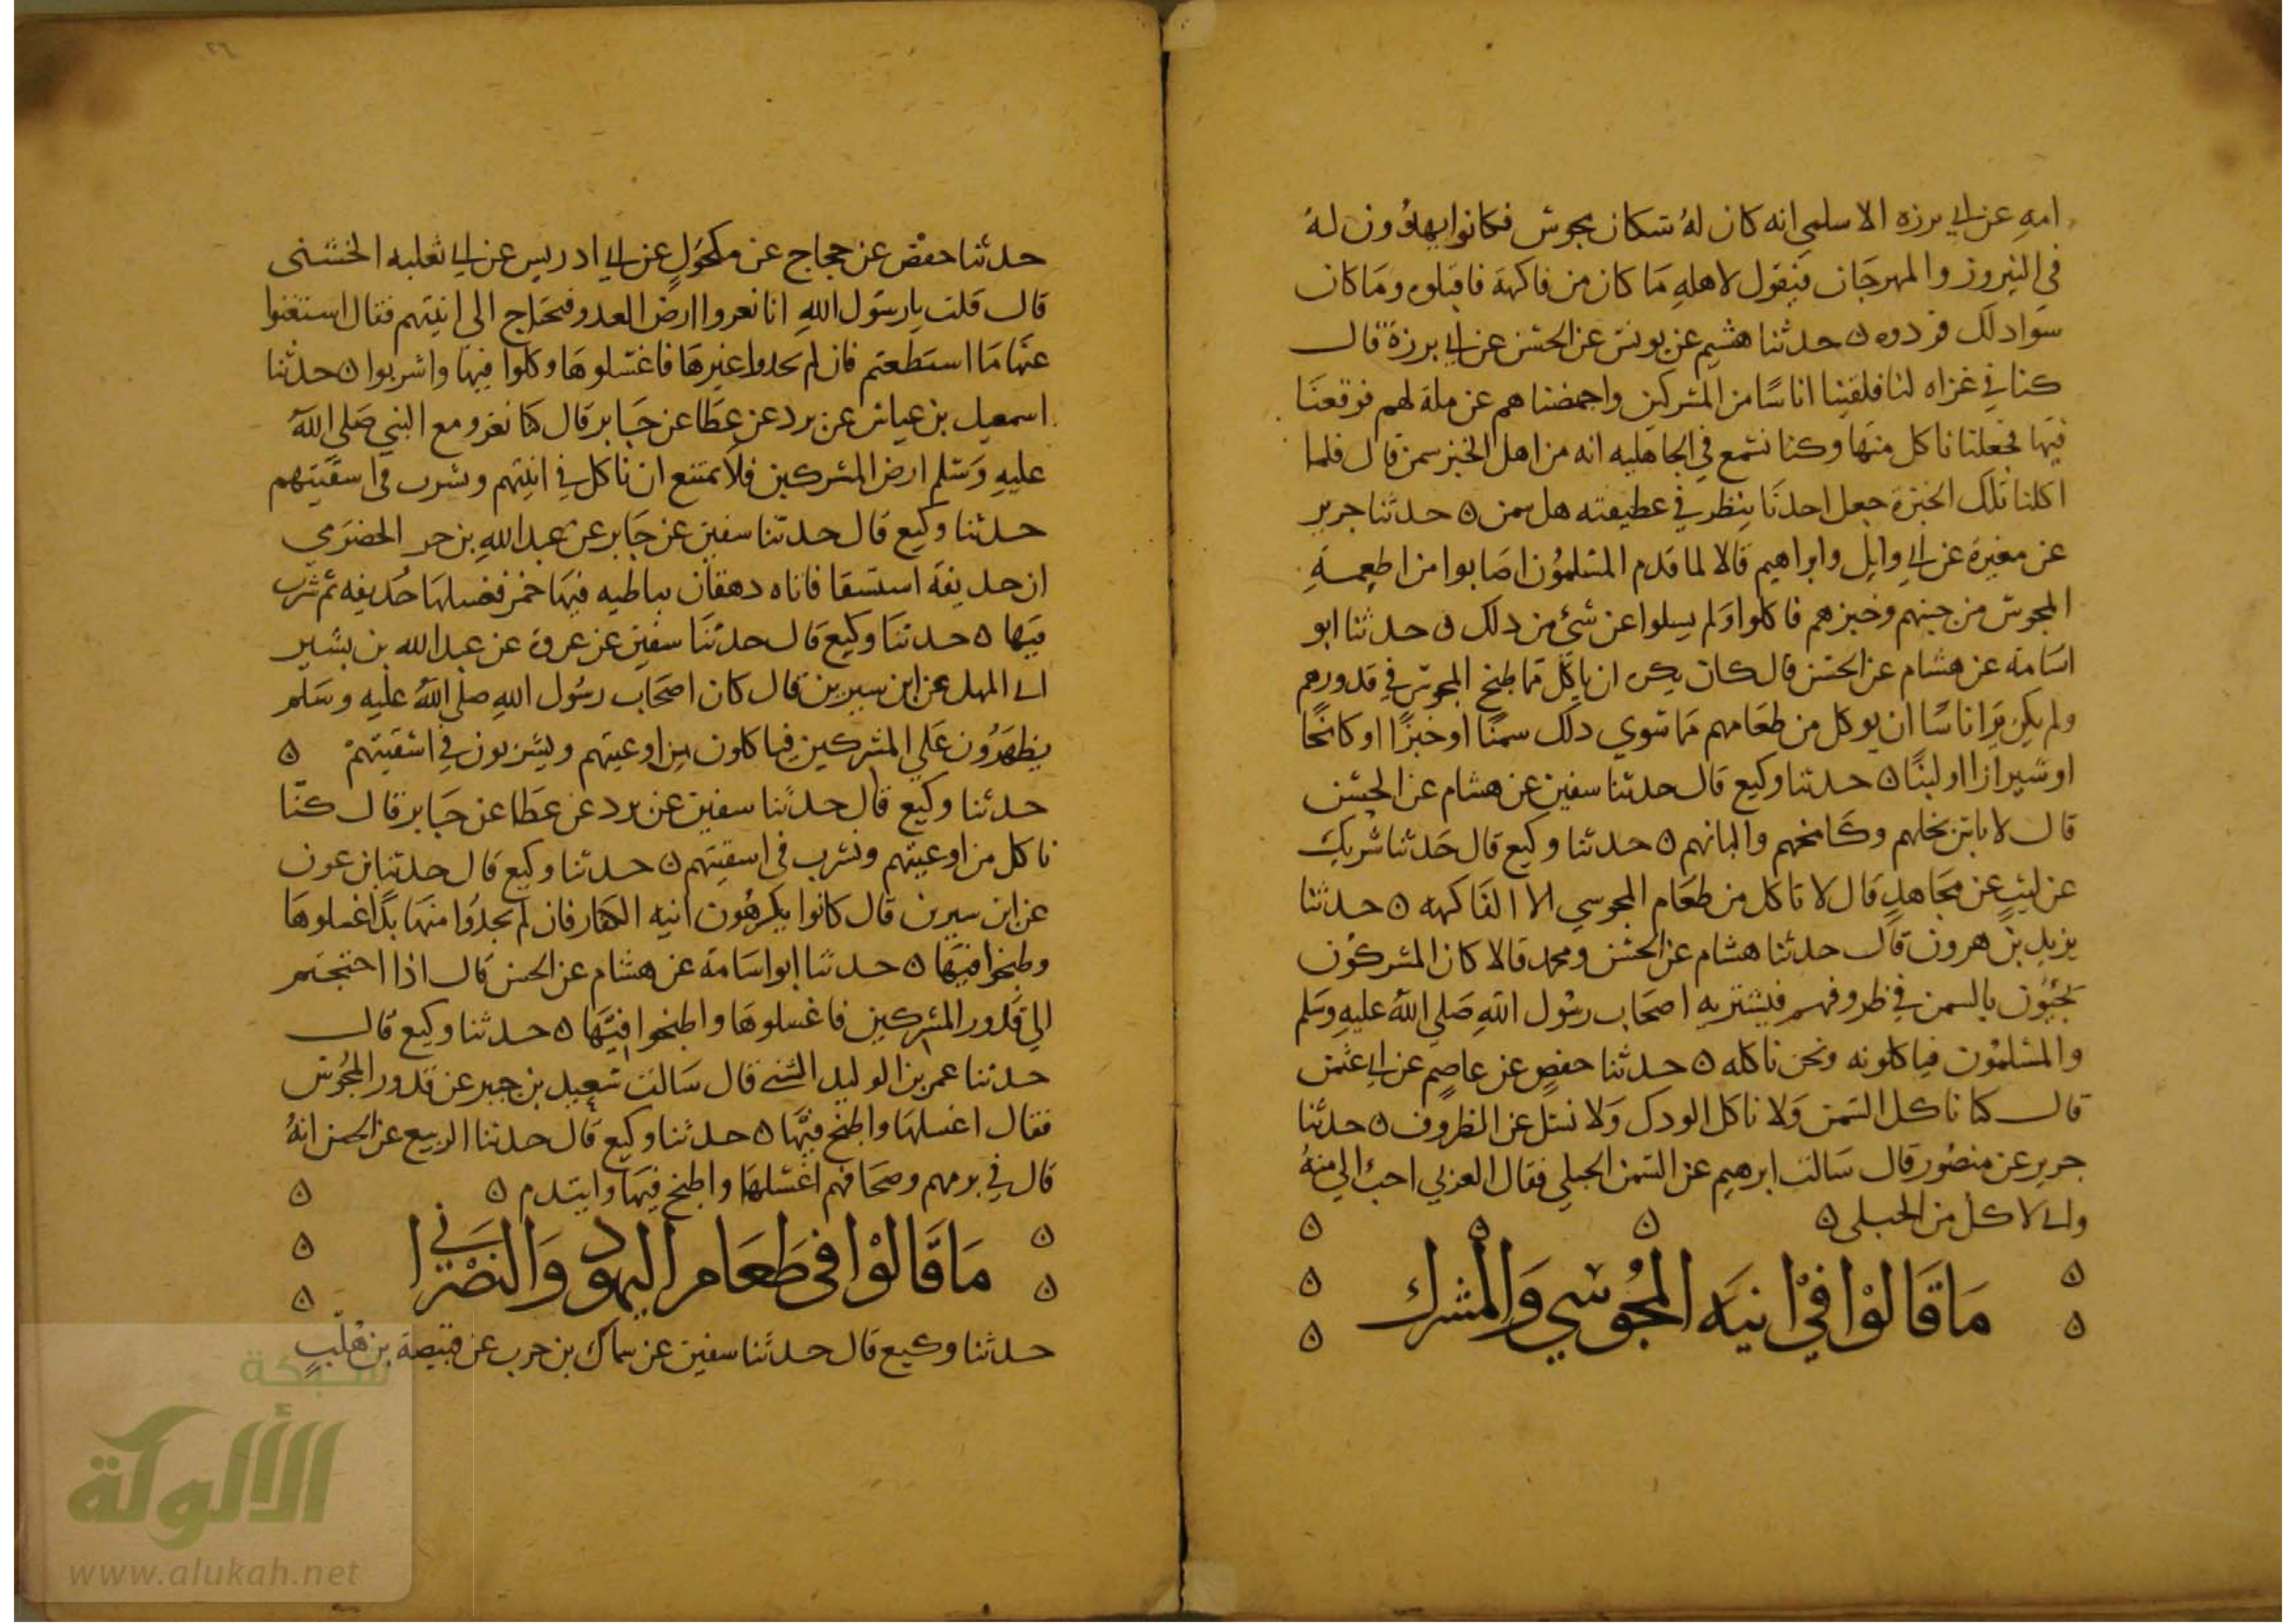 امه عن ابي برزه الاسلمي انه كان له سكان مجوس فكانوا يهدون له
في النيروز والمهرجان فيقول لاهله ما كان من فاكهة فاقبلوه وما كان
سوا دلك فردوه ه حدثنا هشيم عن يونس عن الحسن عن ابي برزة قال
كنا في غزاه لنا فلقينا اناسا من المشركين واجهضناهم عن ملة لهم فوقعنا
فيها فجعلنا ناكل منها وكنا نسمع في الجاهليه انه من اهل الخبز سمن قال فلما
اكلنا تلك الخبزة جعل احدنا ينظر في عطيفته هل سمن ه حدثنا جرير
عن مغيرة عن ابي وايل وابراهيم قالا لما قدم المسلمون اصابوا من اطعمة
المجوس من جبنهم وخبزهم فاكلوا ولم يسلوا عن شئ من دلك ه حدثنا ابو
اسامة عن هشام عن الحسن قال كان يكره ان ياكل مما طبخ المجوس في قدورهم
ولم يكن يرا ناسا ان يوكل من طعامهم مما سوي دلك سمنا او خبزا او كامخا
او شيرازا او لبنا ه حدثنا وكيع قال حدثنا سفين عن هشام عن الحسن
قال لا باس بخلهم وكامخهم والبانهم ه حدثنا وكيع قال حدثنا شريك
عن ليث عن مجاهد قال لا تاكل من طعام المجوسي الا الفاكهه ه حدثنا
يزيد بن هرون قال حدثنا هشام عن الحسن ومحمد قالا كان المشركون
يجيون بالسمن في ظروفهم فيشتريه اصحاب رسول الله صلي الله عليه وسلم
والمسلمون فياكلونه ونحن ناكله ه حدثنا حفص عن عاصم عن ابي عثمن
قال كنا ناكل السمن ولا ناكل الودك ولا نسل عن الظروف ه حدثنا
جرير عن منصور قال سالت ابرهيم عن السمن الجبلي فقال العربي احب الي منه
واني لاكل من الجبلي ه
ما قالوا في انيه المجوسي والمشرك
٢٦
حدثنا حفص عن حجاج عن مكحول عن ابي ادريس عن ابي ثعلبه الخشني
قال قلت يا رسول الله انا نغروا ارض العدو فنحتاج الي انيتهم فقال استغنوا
عنها ما استطعتم فان لم تجدوا غيرها فاغسلوها وكلوا فيها واشربوا ه حدثنا
اسمعيل بن عياش عن برد عن عطا عن جابر قال كنا نغزو مع النبي صلي الله
عليه وسلم ارض المشركين فلا نمتنع ان ناكل في انيتهم ونشرب في اسقيتهم
حدثنا وكيع قال حدثنا سفين عن جابر عن عبد الله بن حر الحضرمي
ان حديفة استسقا فاتاه دهقان بباطيه فيها خمر فغسلها حديفه ثم شرب
فيها ه حدثنا وكيع قال حدثنا سفين عن عروة عن عبد الله بن بشير
ابي المهل عن ابن سيرين قال كان اصحاب رسول الله صلي الله عليه وسلم
يظهرون علي المشركين فياكلون من اوعيتهم ويشربون في اسقيتهم ه
حدثنا وكيع قال حدثنا سفين عن برد عن عطا عن جابر قال كنا
ناكل من اوعيتهم ونشرب في اسقيتهم ه حدثنا وكيع قال حدثنا بن عون
عن ابن سيرين قال كانوا يكرهون انيه الكفار فان لم يجدوا منها بدا غسلوها
وطبخوا فيها ه حدثنا ابو اسامة عن هشام عن الحسن قال اذا احتجتم
الي قدور المشركين فاغسلوها واطبخوا فيها ه حدثنا وكيع قال
حدثنا عمر بن الوليد الشني قال سالت سعيد بن جبير عن قدور المجوس
فقال اغسلها واطبخ فيها ه حدثنا وكيع قال حدثنا الربيع عن الحسن انه
قال في برمهم وصحافهم اغسلها واطبخ فيها وايتدم ه
ما قالوا في طعام اليهود والنصراني
حدثنا وكيع قال حدثنا سفين عن سماك بن حرب عن قبيصة بن هلب
شبكة
الألوكة
www.alukah.net